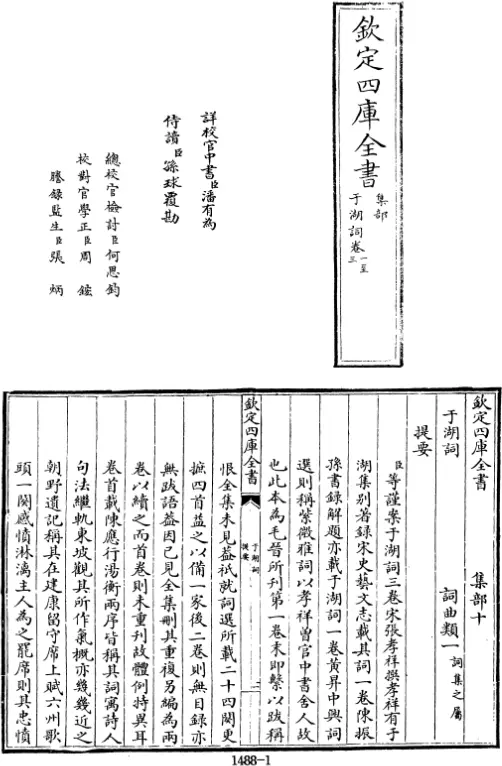 欽定四庫全書
集部
于湖詞卷一至三
詳校官中書臣潘有為
侍讀臣孫球覆勘
總校官檢討臣何思鈞
校對官學正臣周鋐
謄錄監生臣張炳
欽定四庫全書 集部十
于湖詞 詞曲類一 詞集之屬
提要
臣等謹案于湖詞三卷宋張孝祥撰孝祥有于
湖集别著錄宋史藝文志載其詞一卷陳振
孫書錄解題亦載于湖詞一卷黃昇中興詞
選則稱紫微雅詞以孝祥曾官中書舍人故
也此本為毛晉所刊第一卷末即繫以跋稱
欽定四庫全書 于湖詞 提要
恨全集未見葢祇就詞選所載二十四闋更
摭四首益之以備一家後二卷則無目錄亦
無跋語葢因已見全集刪其重複另編為兩
卷以續之而首卷則未重刊故體例持異耳
卷首載陳應行湯衡兩序皆稱其詞寓詩人
句法繼軌東坡觀其所作氣概亦幾幾近之
朝野遺記稱其在建康留守席上賦六州歌
頭一闋感憤淋漓主人為之罷席則其忠憤
1488-1